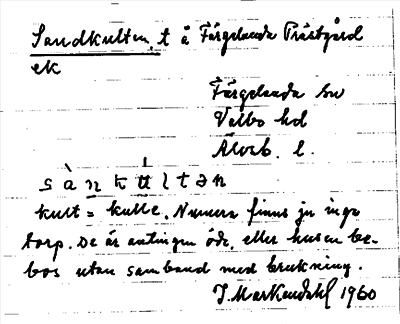 Sandkulten, t å Färgelanda Prästgård
ek
Färgelanda sn
Valbo hd
Älvsb. l.
sàn kultən
kult = kulle. Numera finns ju inga
torp. De är antingen öde, eller husen be-
bos utan samband med brukning.
J. Markendahl 1960